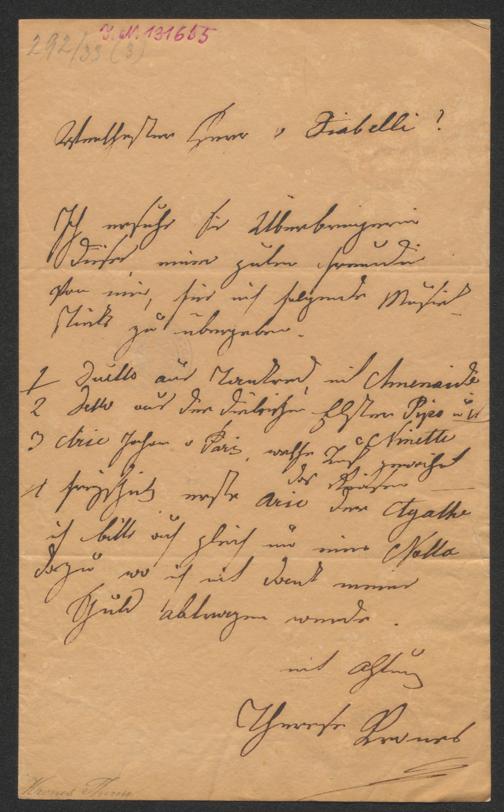 I. N. 131655
292/33 (3)
Werthester Herr v Diabelli!
Ich ersuche sie Überbringerin
dieses, meine gute Freundin
von mir, für mich folgende Musick
Stücke zu übergeben.
1 Duetto aus Tankred, mit Amenaide
2 Detto aus der diebischen Elster Pipo und
Ninette
3 Arie Johan v Paris, welche Lust gewährt
das Reisen
4 Freyschütz erste Arie der Agathe
ich bitte auch gleich um eine Notta
dazu wo ich mit Dank meine
Schuld abtragen werde.
mit Achtung
Therese Krones
Krones Therese